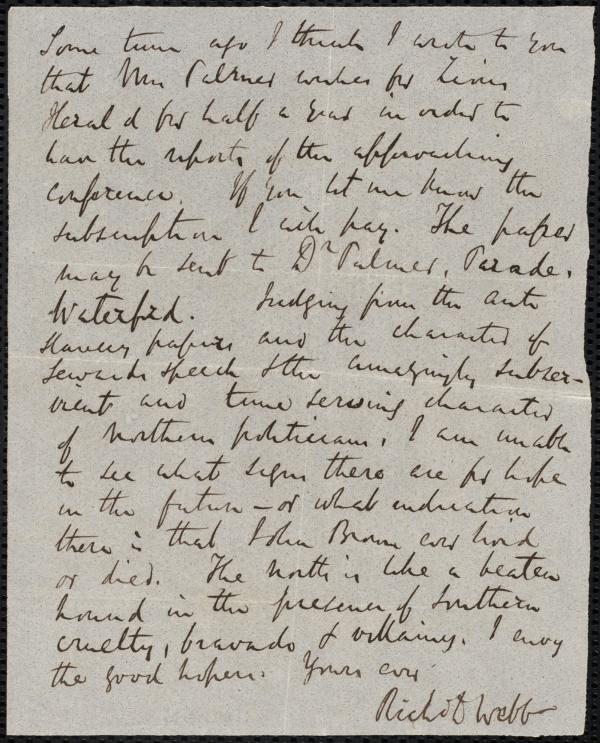 Some time ago I think I wrote to you
that Mrs Palmer wishes for
Herald for half a year in order to
have the reports of the approaching
conference. If you let me know the
subscription I will pay. The paper
may be sent to Dr Palmer, Parade,
Waterford. Judging from the anti
slavery papers and the character of
Sewards speech & the amazingly subser-
vient and time serving character
of Northern politicians, I am unable
to see what signs there are for hope
in the future - or what indication
there is that John Brown ever lived
or died. The North is like a beaten
hound in the presence of Southern
cruelty, bravado & villainy. I envy
the good hopers. Yours ever
Richd D Webb